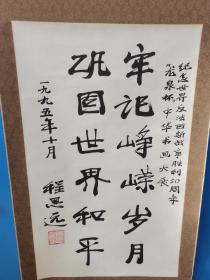 纪念世界反法西斯战争胜利50周年
暨泉杯中华书画大展
牢记峥嵘岁月
巩固世界和平
一九九五年十月
程思远